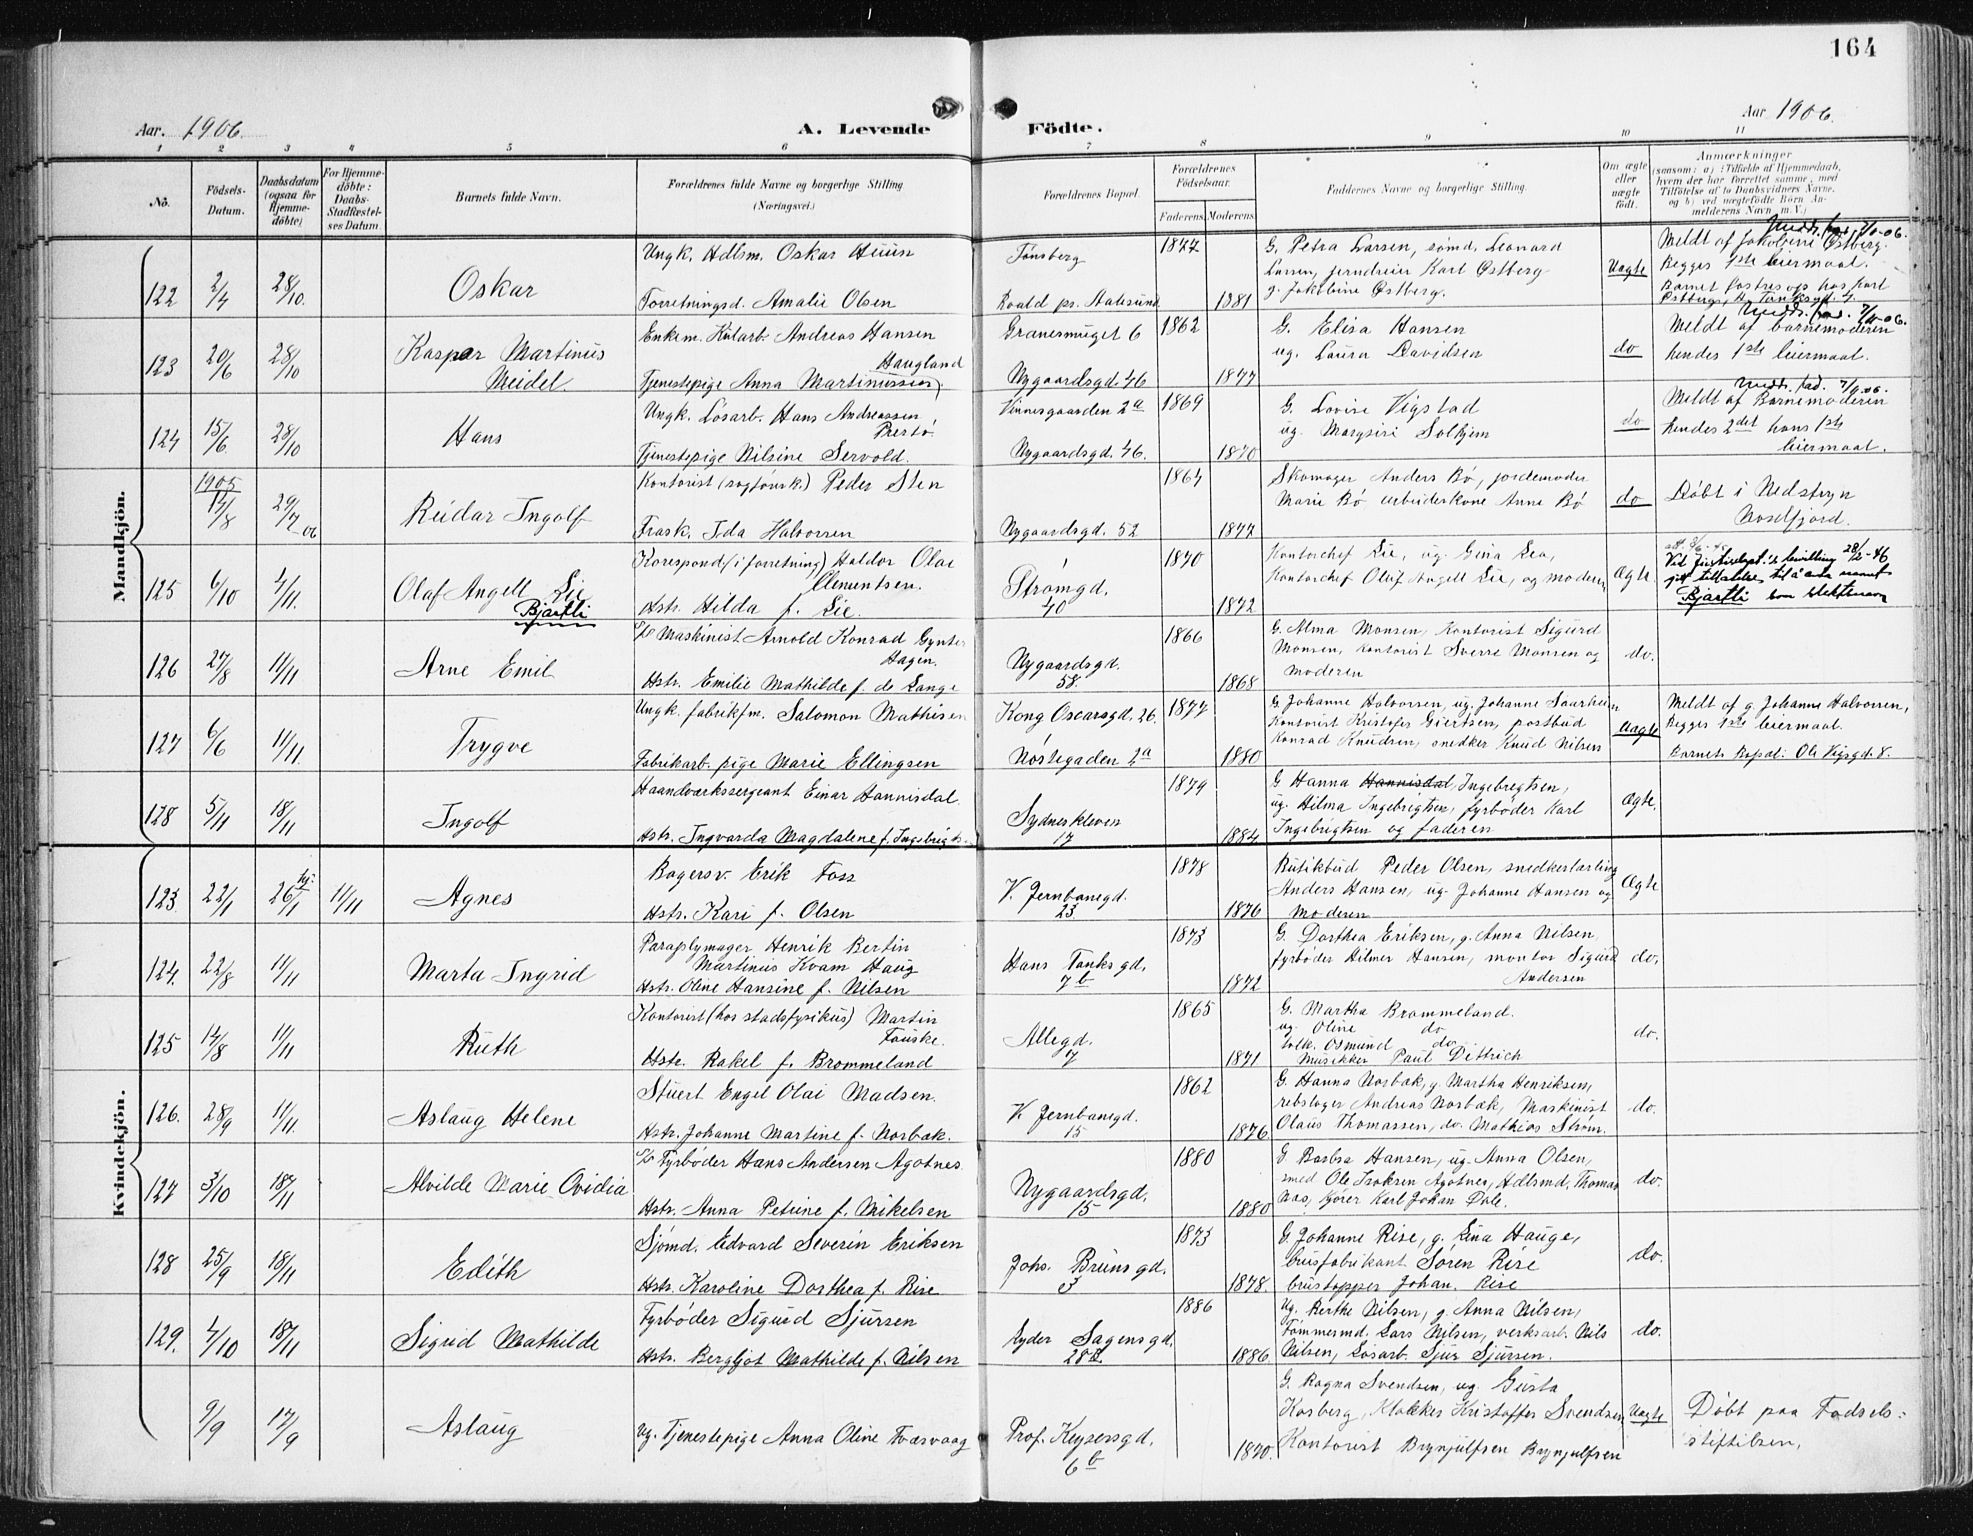 164
Aar. 1906.
A. Levende Födte.
Aar 1906.
1 2 3 4 5 6 7 8 9 10 11
No.
Födsels-Datum.
Daabsdatum (ogsaa for Hjemme-döbte)
For Hjemme-döbte: Daabs-Stadfæstel-ses Datum
Barnets fulde Navn.
Forældrenes fulde Navne og borgerlige Stilling (Næringsvei.)
Forældrenes Bopæl.
Forældrenes Födselsaar.
Faderens
Moderens
Faddernes Navne og borgerlige Stilling.
Om ægte eller uægte födt.
Anmærkninger
(saasom: a) i Tilfælde af Hjemmedaab, hvem der har forrettet samme, med Tilföielse af to Daabsvidners Navne, og b) ved uægtefödte Börn An-melderens Navn m. V.)
Mandkjön.
122 2/4 28/10. Oskar
Ungk. Hdlsm. Oskar Huun
Forretningsd. Amalie Olsen
Tönsberg
Roald pr. Aalesund
1877 1881
G. Petra Larsen, sömd. Leonard
Larsen, jerndreier Karl Østberg
g. Jakobine Østberg.
Uægte
Meldt af Jakobine Østberg.
Begges 1ste leiermaal.
Barnet fostres op hos Karl
Østberg, H. Tanksgd. 4.
123 20/6 28/10 Kaspar Martinus
Meidel
Enkem. Kularb. Andreas Hansen
Haugland
Tjenestepige Anna Martinussen
Granesmuget 6
Nygaardsgd. 46
1862 1877
G. Elisa Hansen
ug. Laura Davidsen
do
Meldt af barnemoderen
hendes 1ste leiermaal.
124 15/6 28/10 Hans
Ungk. Lösarb. Hans Andreassen
Prestö.
Tjenestepige Nilsine Servold.
Vinnesgaarden 2a
Nygaardsgd. 46.
1869 1870
G. Lovise Vigstad
ug. Margsiri Solhjem
do
Meldt af Barnemoderen
hendes 2det hans 1ste
leiermaal.
1905
14/8 29/7 06 Reidar Ingolf
Kontorist (sagförerk.) Peder Sten
Frask. Ida Halvorsen
Nygaardsgd. 52
1864 1877
Skomager Anders Bö, jordemoder
Marie Bö arbeiderkone Anne Bö
do
Döbt i Nedstryn
Nordfjord.
125 6/10 4/11. Olaf Angell Lie
Bjartli
Korespond (i forretning) Haldor Olai
Clementsen.
Hstr. Hilda f. Lie.
Strömgd.
40
1870 1872
Kontorchef Lie, ug. Gina Lea,
Kontorchef Oluf Angell Lie, og moderen
Ægte.
Ved Justisdept.'s bevilling 28/2-46
gitt tillatelse til å anta navnet
Bjartli som slektsnavn
126 27/8 11/11 Arne Emil
Maskinist Arnold Konrad Gynter
Hagen.
Hstr. Emilie Mathilde f. de Lange
Nygaardsgd.
58.
1866 1868
G. Alma Monsen, Kontorist Sigurd
Monsen, kontorist Sverre Monsen og
moderen
do.
127 6/6 11/11. Trygve
Ungk. fabrikfm. Salomon Mathisen
Fabrikarb. pige Marie Ellingsen
Kong Oscarsgd. 26.
Nöstegaden 2a
1877 1880
G Johanne Halvorsen, ug. Johanne Saarheim
Kontorist Kristofer Giertsen, postbud
Konrad Knudsen, snedker Knud Nilsen
Uægte
Meldt af g. Johanne Halvorsen,
Begges 1ste leiermaal.
Barnets Bopæl: Ole Vigsgd. 8.
128 5/11 18/11 Ingolf
Haandværkssergeant Einar Hannisdal.
Hstr. Ingvarda Magdalene f. Ingebrigts.
Sydneskleven
17
1879 1884
G Hanna Hannisdal, Ingebregtsen,
ug. Hilma Ingebrigtsen, fyrböder Karl
Ingebrigtsen og faderen
Ægte.
Kvindekjön.
123. 22/1 26/1 hj. 11/11 Agnes
Bagersv. Erik Foss
Hstr. Kari f. Olsen
V. Jernbanegd.
23
1878 1876
Butikbud Peder Olsen, snedkerlærling
Anders Hansen, ug. Johanne Hansen og
moderen
Ægte
124. 22/8 11/11 Marta Ingrid
Paraplymager Henrik Bertin
Martinus Kvam Haug
Hstr. Oline Hansine f. Nilsen
Hans Tanks gd.
7b
1873 1872
G. Dorthea Eriksen, g. Anna Nilsen,
fyrböder Hilmer Hansen, montör Sigurd
Andersen
do.
125 14/8 11/11 Ruth
Kontorist (hos stadsfysikus) Martin
Fauske.
Hstr. Rakel f. Brommeland
Allegd.
7
1865 1871
G. Martha Brommeland.
ug. Oline do
tolk. Osmund do.
Musikker Paul Dittrich
do.
126. 28/9 11/11. Aslaug Helene
Stuert Engel Olai Madsen.
Hstr. Johanne Martine f. Norbak.
V. Jernbanegd.
15
1862 1876
G. Hanna Norbak, g. Martha Henriksen,
rebslager Andreas Norbak, Maskinist
Olaus Thomassen, do. Mathias Ström.
do.
127 3/10 18/11 Alvilde Marie Ovidia
Fyrböder Hans Andersen Agotnes
Hstr. Anna Petrine f. Mikelsen
Nygaardsgd.
15
1880 1880
G Barbra Hansen, ug. Anna Olsen,
smed Ole Isaksen Agotnes, Hdlsmd. Thomas
Aas, kjörer Karl Johan Dale.
do.
128 25/9 18/11 Edith
Sjömd. Edvard Severin Eriksen
Hstr. Karoline Dorthea f. Rise
Johs. Bruns gd.
3
1873 1878.
G. Johanne Rise, g. Lina Hauge,
brusfabrikant Sören Rise
brustapper Johan. Rise
do.
129. 4/10 18/11 Sigrid Mathilde
Fyrböder Sigurd Sjursen
Hstr. Bergljot Mathilde f. Nilsen
Lyder Sagens gd.
28
1886 1886
Ug. Berthe Nilsen, g. Anna Nilsen,
Tömmermd. Lars Nilsen, verksarb. Nils
Nilsen, Lösarb. Sjur Sjursen.
do.
9/9 17/9 Aslaug
Ug. Tjenestepige Anna Oline Tvæsvaag
Prof. Keysersgd.
6b
1870.
G. Ragna Svendsen, ug. Gusta
Korberg, Klokker Kristoffer Svendsen
Kontorist Brynjulfsen Brynjulfsen
Uægte
Döbt paa Födsels-
stiftelsen.